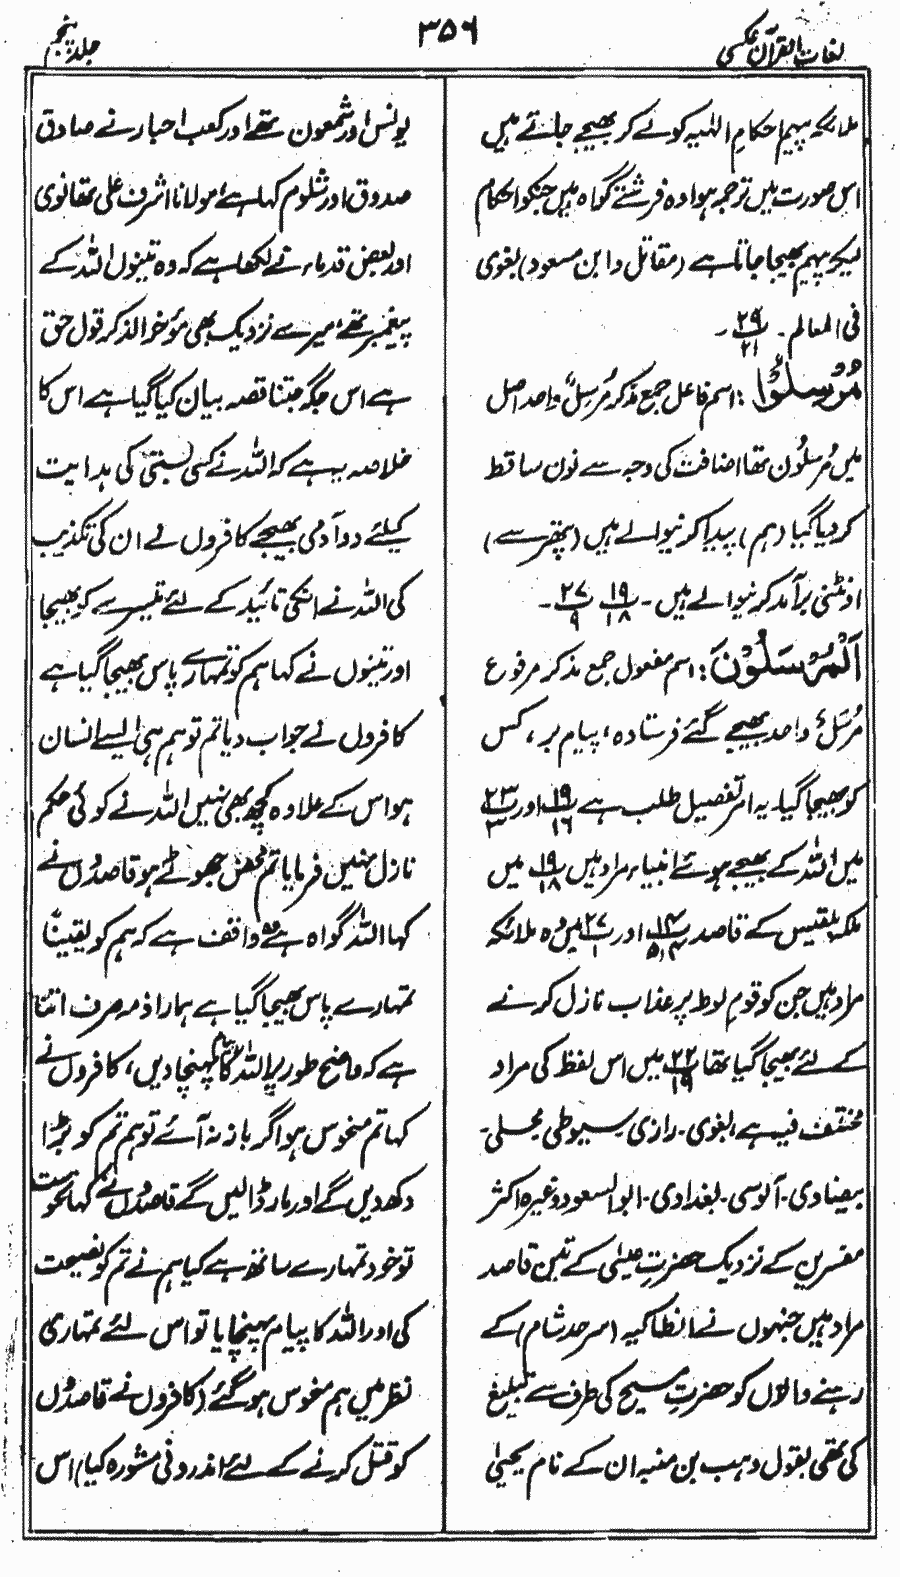 لغات القرآن عکسی
۳۵۶
جلد پنجم
ملائکہ پیہم احکامِ الٰہیہ کو لے کر بھیجے جاتے ہیں
اس صورت میں ترجمہ ہوا وہ فرشتے گواہ ہیں جنکو احکام
لیکر پیہم بھیجا جاتا ہے (مقاتل و ابن مسعود) بغوی
فی المعالم۔ ۲۹/۲۱ ۔
مُرْسِلُوْا : اسم فاعل جمع مذکر مُرسِلٌ، واحد اصل
میں مُرسِلُون تھا اضافت کی وجہ سے نون ساقط
کر دیا گیا (ہم) پیدا کرنیوالے ہیں (پتھر سے)
اونٹنی برآمد کرنیوالے ہیں ۔ ۱۹/۱۸ ۲۷/۹ ۔
اَلْمُرْسَلُوْنَ : اسم مفعول جمع مذکر مرفوع
مُرسَلٌ واحد بھیجے گئے فرستادہ، پیام بر، کس
کو بھیجا گیا۔ یہ امر تفصیل طلب ہے ۱۹/۱۶ اور ۲۳/۳
میں اللہ کے بھیجے ہوئے انبیاء مراد ہیں ۱۹/۱۸ میں
ملکہ بلقیس کے قاصد ۱۴/۵،۴ اور ۲۷/۱ میں وہ ملائکہ
مراد ہیں جن کو قومِ لوط پر عذاب نازل کرنے
کے لئے بھیجا گیا تھا ۲۲/۱۹ میں اس لفظ کی مراد
مختلف فیہ ہے، بغوی۔ رازی۔ سیوطی محلی۔
بیضاوی۔ آلوسی۔ بغدادی۔ ابوالسعود وغیرہ اکثر
مفسرین کے نزدیک حضرتِ عیسٰی کے تین قاصد
مراد ہیں جنہوں نے انطاکیہ (سرحد شام) کے
رہنے والوں کو حضرتِ مسیح کی طرف سے تبلیغ
کی تھی بقول وہب بن منبہ ان کے نام یحییٰ
یونس اور شمعون تھے اور کعب احبار نے صادق
صدوق اور شلوم کہا ہے، مولانا اشرف علی تھانوی
اور بعض قدماء نے لکھا ہے کہ وہ تینوں اللہ کے
پیغمبر تھے، میرے نزدیک بھی مؤخرالذکر قول حق
ہے اس جگہ جتنا قصہ بیان کیا گیا ہے اس کا
خلاصہ یہ ہے کہ اللہ نے کسی بستی کی ہدایت
کیلئے دو آدمی بھیجے کافروں نے ان کی تکذیب
کی اللہ نے انکی تائید کے لئے تیسرے کو بھیجا
اور تینوں نے کہا ہم کو تمہارے پاس بھیجا گیا ہے
کافروں نے جواب دیا تم تو ہم ہی ایسے انسان
ہو اس کے علاوہ کچھ بھی نہیں اللہ نے کوئی حکم
نازل نہیں فرمایا تم محض جھوٹے ہو قاصدوں نے
کہا اللہ گواہ ہے وہ واقف ہے کہ ہم کو یقینًا
تمہارے پاس بھیجا گیا ہے ہمارا ذمہ صرف اتنا
ہے کہ واضح طور پر اللہ کا پیام پہنچا دیں، کافروں نے
کہا تم منحوس ہو اگر باز نہ آئے تو ہم تم کو بُرا
دکھ دیں گے اور مار ڈالیں گے قاصدوں نے کہا نحوست
تو خود تمہارے ساتھ ہے کیا ہم نے تم کو نصیحت
کی اور اللہ کا پیام پہنچایا تو اس لئے تمہاری
نظر میں ہم منحوس ہو گئے (کافروں نے قاصدوں
کو قتل کرنے کے لئے اندرونی مشورہ کیا) اس